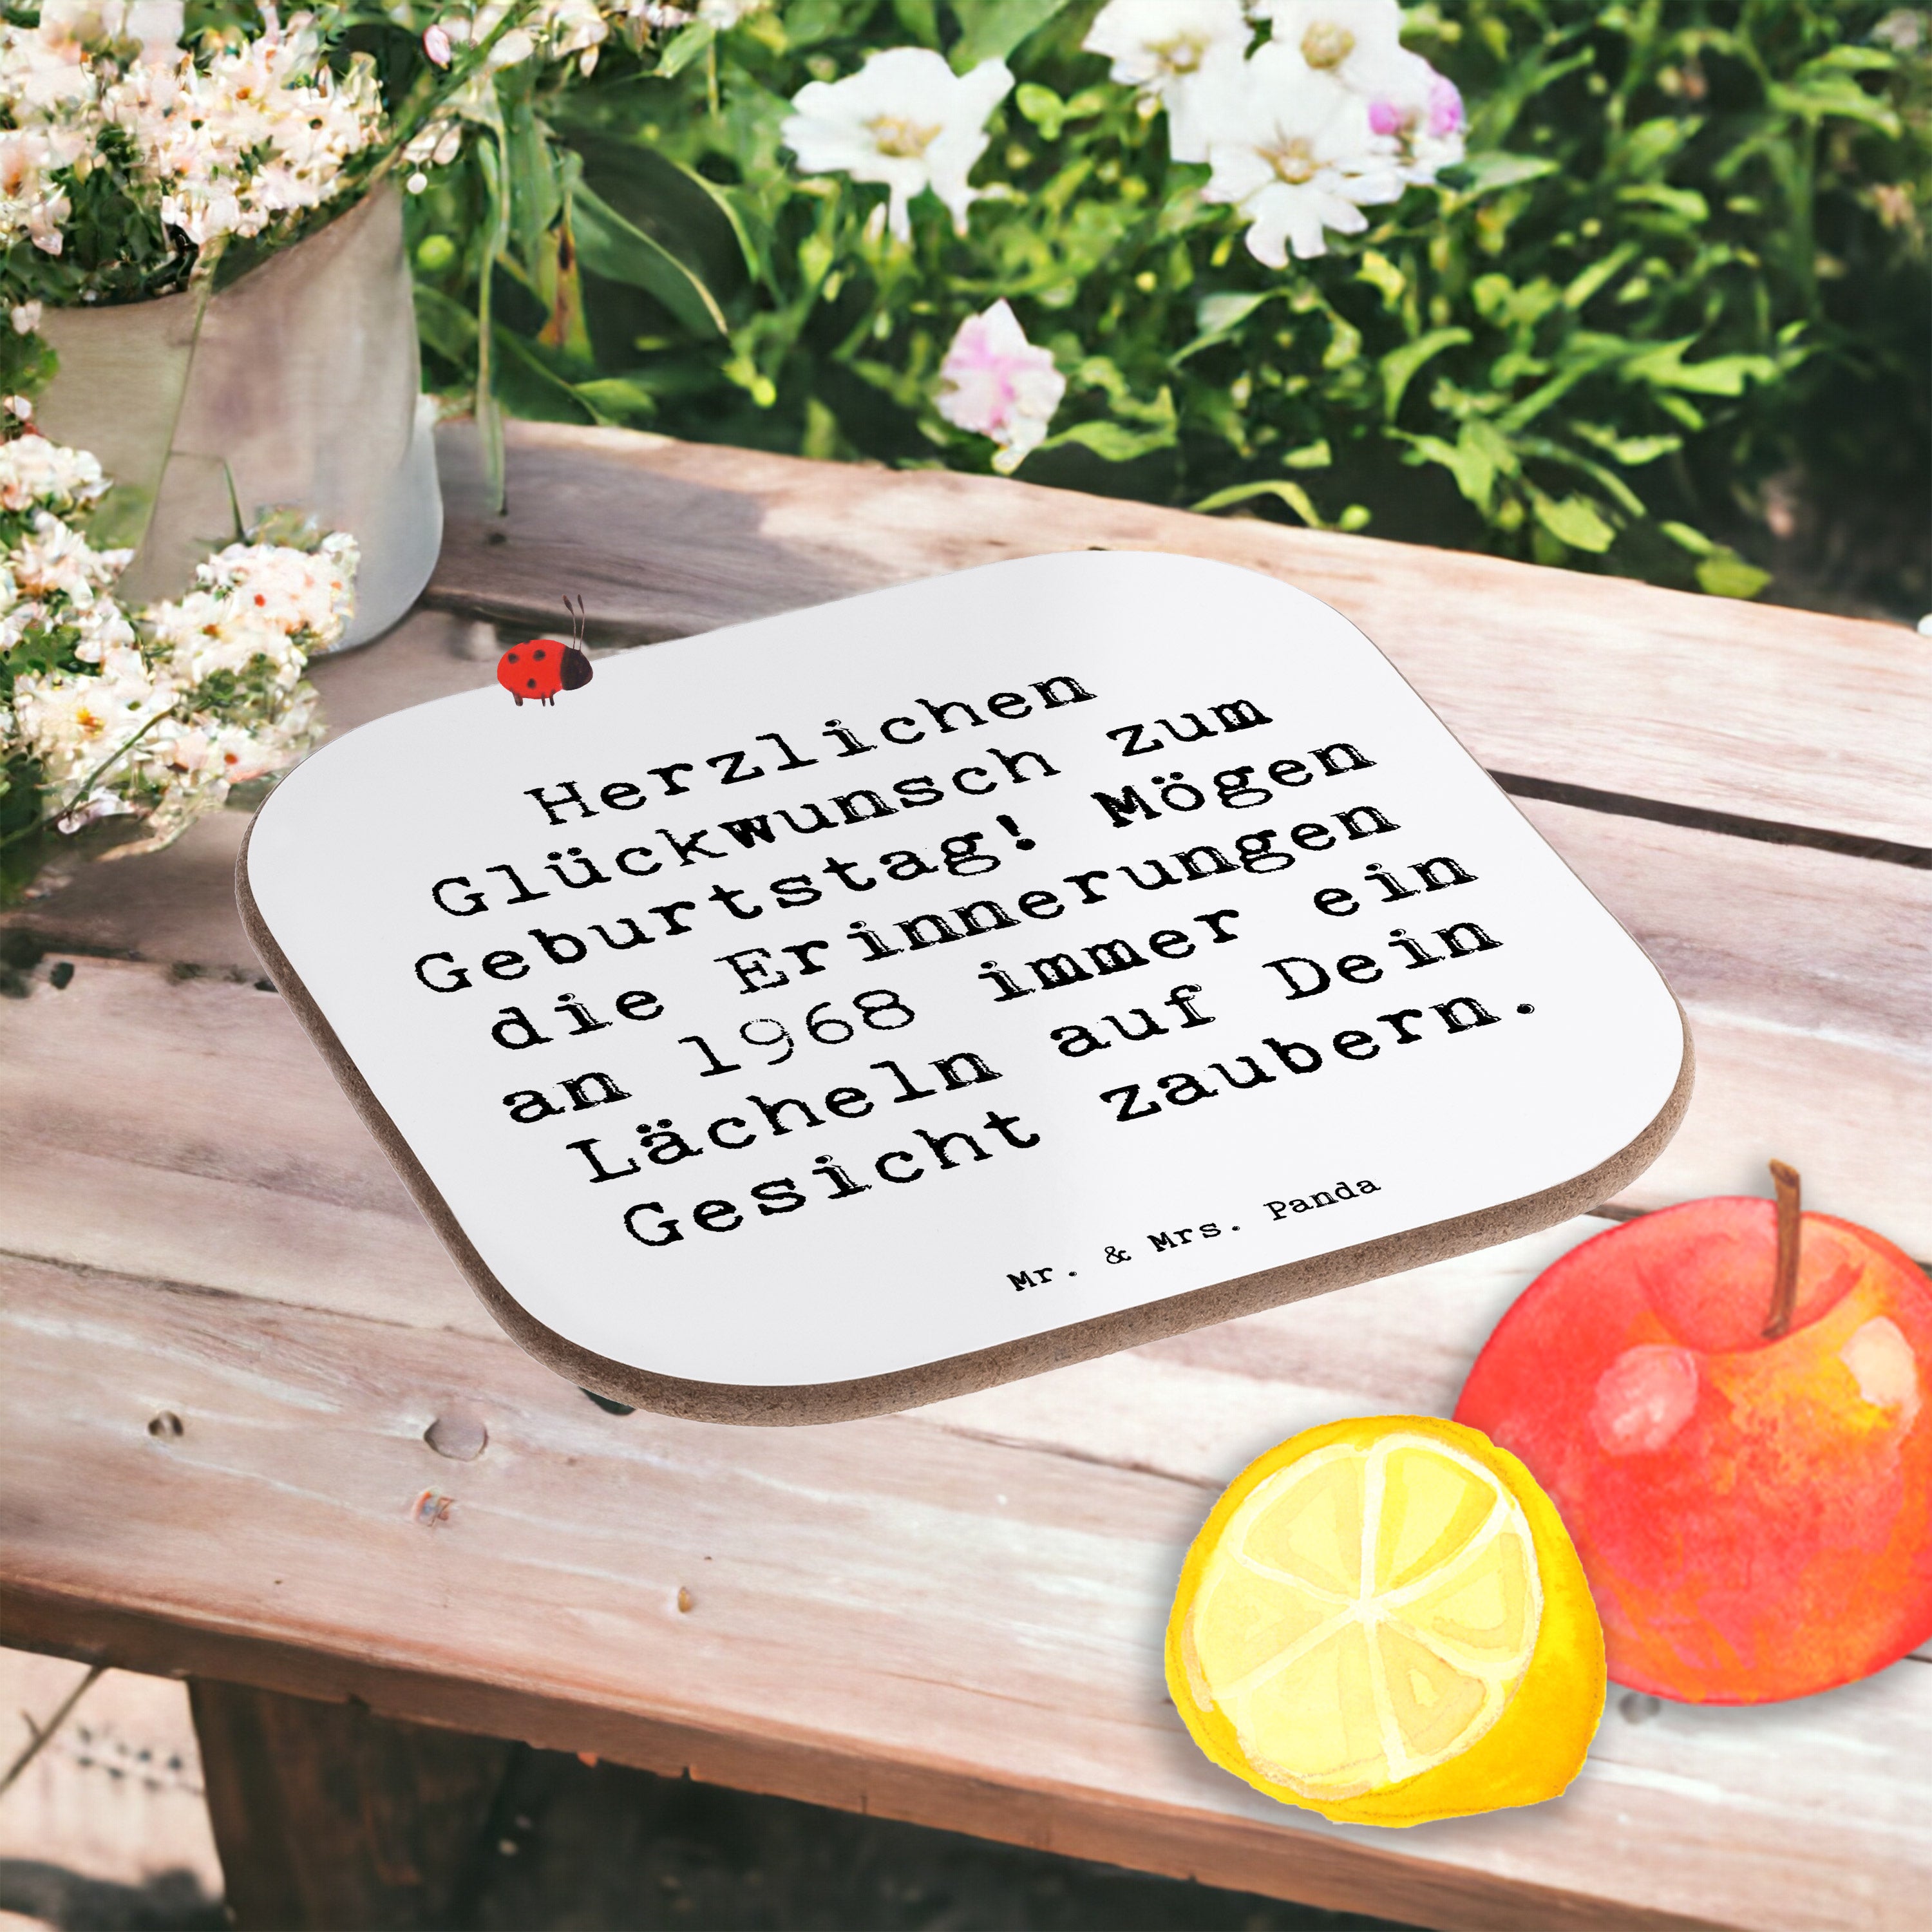 Herzlichen
Glückwunsch zum
Geburtstag! Mögen
die Erinnerungen
an 1968 immer ein
Lächeln auf Dein
Gesicht zaubern.
Mr. & Mrs. Panda